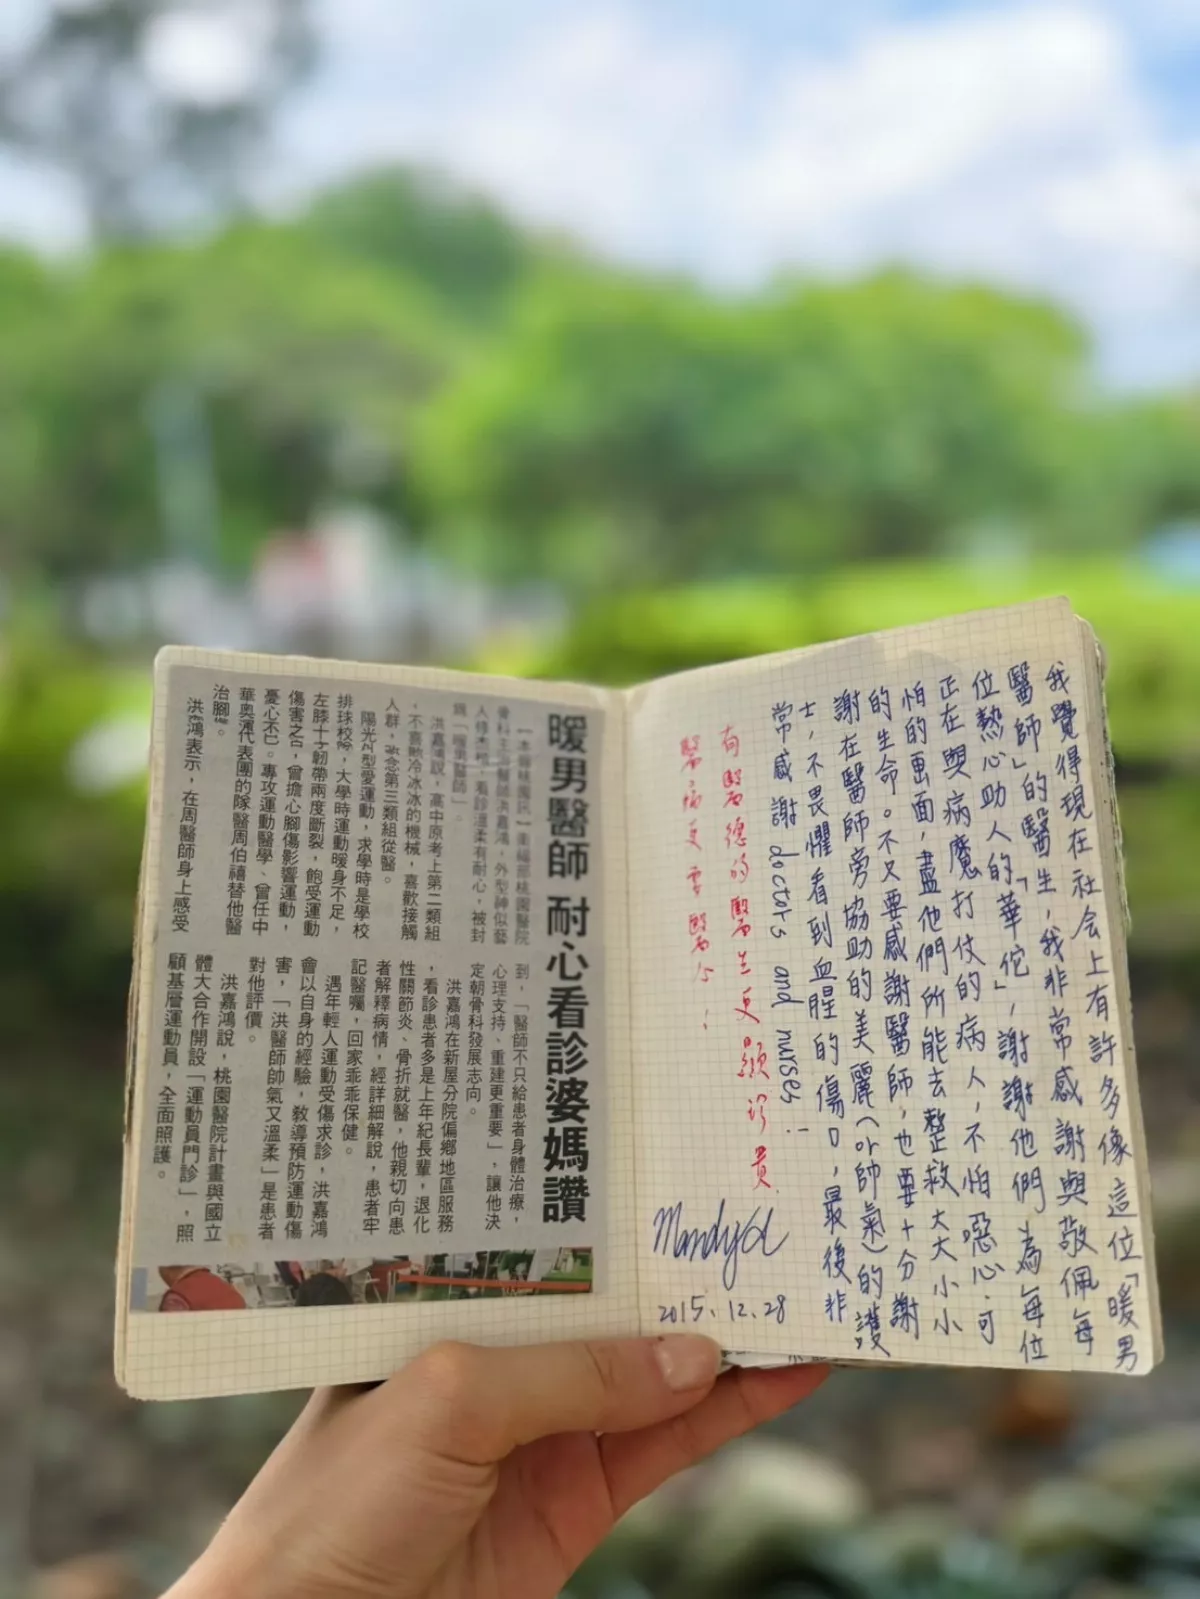 暖男醫師 耐心看診婆媽讚
【本報桃園訊】衛福部桃園醫院
骨科主治醫師洪嘉鴻,外型神似藝
人修杰楷,看診溫柔有耐心,被封
稱「暖男醫師」。
洪嘉鴻說,高中原考上第二類組
,不喜歡冷冰冰的機械,喜歡接觸
人群,改念第三類組從醫。
陽光外型愛運動,求學時是學校
排球校隊,大學時運動暖身不足,
左膝十字韌帶兩度斷裂,飽受運動
傷害之苦,曾擔心腳傷影響運動,
憂心不已。專攻運動醫學、曾任中
華奧運代表團的隊醫周伯禧替他醫
治腳傷。
洪嘉鴻表示,在周醫師身上感受
到,「醫師不只給患者身體治療,
心理支持、重建更重要」,讓他決
定朝骨科發展志向。
洪嘉鴻在新屋分院偏鄉地區服務
,看診患者多是上年紀長輩,退化
性關節炎、骨折就醫,他親切向患
者解釋病情,經詳細解說,患者牢
記醫囑,回家乖乖保健。
遇年輕人運動受傷求診,洪嘉鴻
會以自身的經驗,教導預防運動傷
害,「洪醫師帥氣又溫柔」是患者
對他評價。
洪嘉鴻說,桃園醫院計畫與國立
體大合作開設「運動員門診」,照
顧基層運動員,全面照護。
我覺得現在社会上有許多像這位「暖男
醫師」的醫生,我非常感謝與敬佩每
位熱心助人的「華佗」,謝謝他們為每位
正在與病魔打仗的病人,不怕噁心、可
怕的画面,盡他們所能去整救大大小小
的生命。不又要感謝醫師,也要十分謝
謝在醫師旁協助的美麗(or帥氣)的護
士,不畏懼看到血腥的傷口,最後非
常感謝 doctors and nurses!
有醫德的醫生更顯珍貴
醫病更要醫心!
2015.12.28